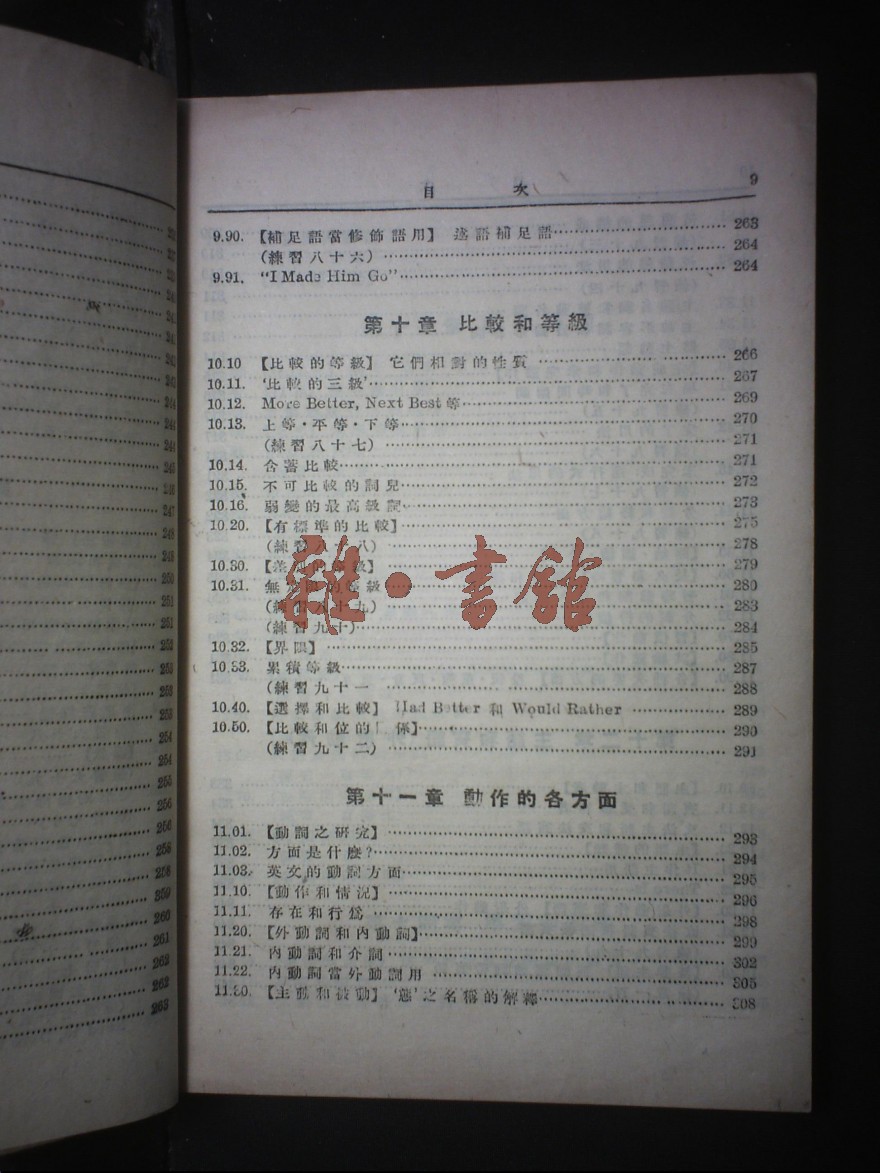 221
241
242
243
244
244
244
245
246
247
248
249
250
251
251
252
252
252
253
254
254
255
256
256
258
258
259
260
261
262
262
263
目 次 9
9.90. 【補足語當修飾語用】 述語補足語 263
(練習八十六) 264
9.91. “I Made Him Go” 264
第十章 比較和等級
10.10 【比較的等級】 它們相對的性質 266
10.11. ‘比較的三級’ 267
10.12. More Better, Next Best等 269
10.13. 上等·平等·下等 270
(練習八十七) 271
10.14. 含蓄比較 271
10.15. 不可比較的詞兒 272
10.16. 弱變的最高級詞 273
10.20. 【有標準的比較】 275
(練習八十八) 278
10.30. 【差別的等級】 279
10.31. 無 的等級 280
(練習八十九) 283
(練習九十) 284
10.32. 【界限】 285
10.33. 累積等級 287
(練習九十一 288
10.40. 【選擇和比較】 Had Better 和 Would Rather 289
10.50. 【比較和位的 係】 290
(練習九十二) 291
第十一章 動作的各方面
11.01. 【動詞之研究】 293
11.02. 方面是什麼? 294
11.03. 英文的動詞方面 295
11.10. 【動作和情況】 296
11.11. 存在和行為 298
11.20. 【外動詞和內動詞】 299
11.21. 內動詞和介詞 302
11.22. 內動詞當外動詞用 305
11.30. 【主動和被動】 ‘態’之名稱的解釋 308
雜·書館